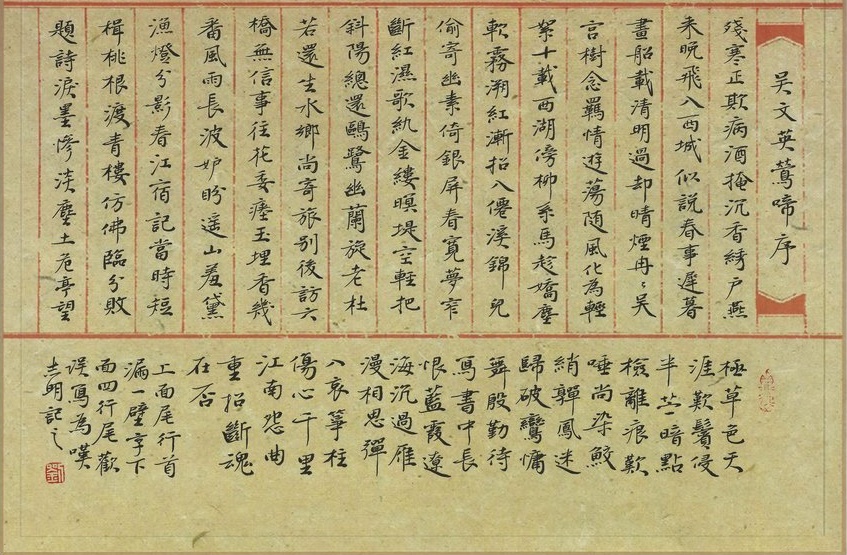 吳文英鶯啼序
殘寒正欺病酒掩沉香綉户燕
来晚飛入西城似説春事遲暮
畫船載清明過却晴煙冉〻吳
宫樹念羈情遊蕩随風化為輕
絮十載西湖傍柳系馬趁嬌塵
軟霧溯紅漸招入僊溪錦兒
偷寄幽素倚銀屏春寬夢窄
斷紅濕歌紈金縷暝堤空輕把
斜陽總還鷗鷺幽蘭旋老杜
若還生水鄉尚寄旅别後訪六
橋無信事往花委瘞玉埋香幾
番風雨長波妒盼遥山羞黛
漁燈分影春江宿記當時短
楫桃根渡青樓仿佛臨分敗
題詩淚墨慘淡塵土危亭望
極草色天
涯歎鬢侵
半苎暗點
檢離痕歎
唾尚染鮫
綃軃鳳迷
歸破鸞慵
舞殷勤待
寫書中長
恨藍霞遼
海沉過雁
漫相思彈
入哀箏柱
傷心千里
江南怨曲
重招斷魂
在否
上面尾行首
漏一壁字下
面四行尾歡
误寫為嘆
志明記之